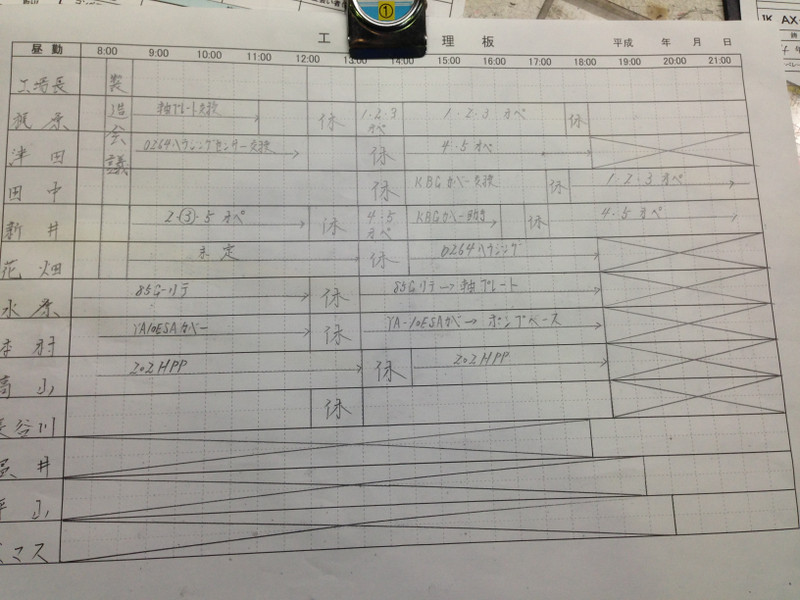 ①
JK AX
工 理 板 平成 年 月 日
昼勤 8:00 9:00 10:00 11:00 12:00 13:00 14:00 15:00 16:00 17:00 18:00 19:00 20:00 21:00
工場長
製造会議
梶原 軸プレート交換 休 1・2・3オペ 1・2・3 オペ 休
津田 D264ハウジングセンサー交換 休 4・5 オペ
田中 休 KBGカバー交換 休 1・2・3 オペ
新井 2・③・5 オペ 休 4・5オペ KBGカバー 休 4・5 オペ
花畑 未定 休 D264ハウジング
水原 85G-リテ 休 85Gリテ→軸プレート
村 YA10ESAカバー 休 YA-10ESAカバー→ポンプベース
高山 202HPP 休 202HPP
長谷川 休
井
山
マス